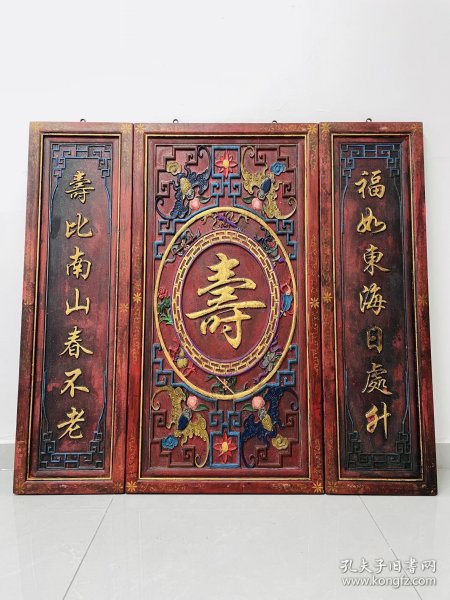 福如東海日處升
壽
壽比南山春不老
孔夫子旧书网
www.kongfz.com